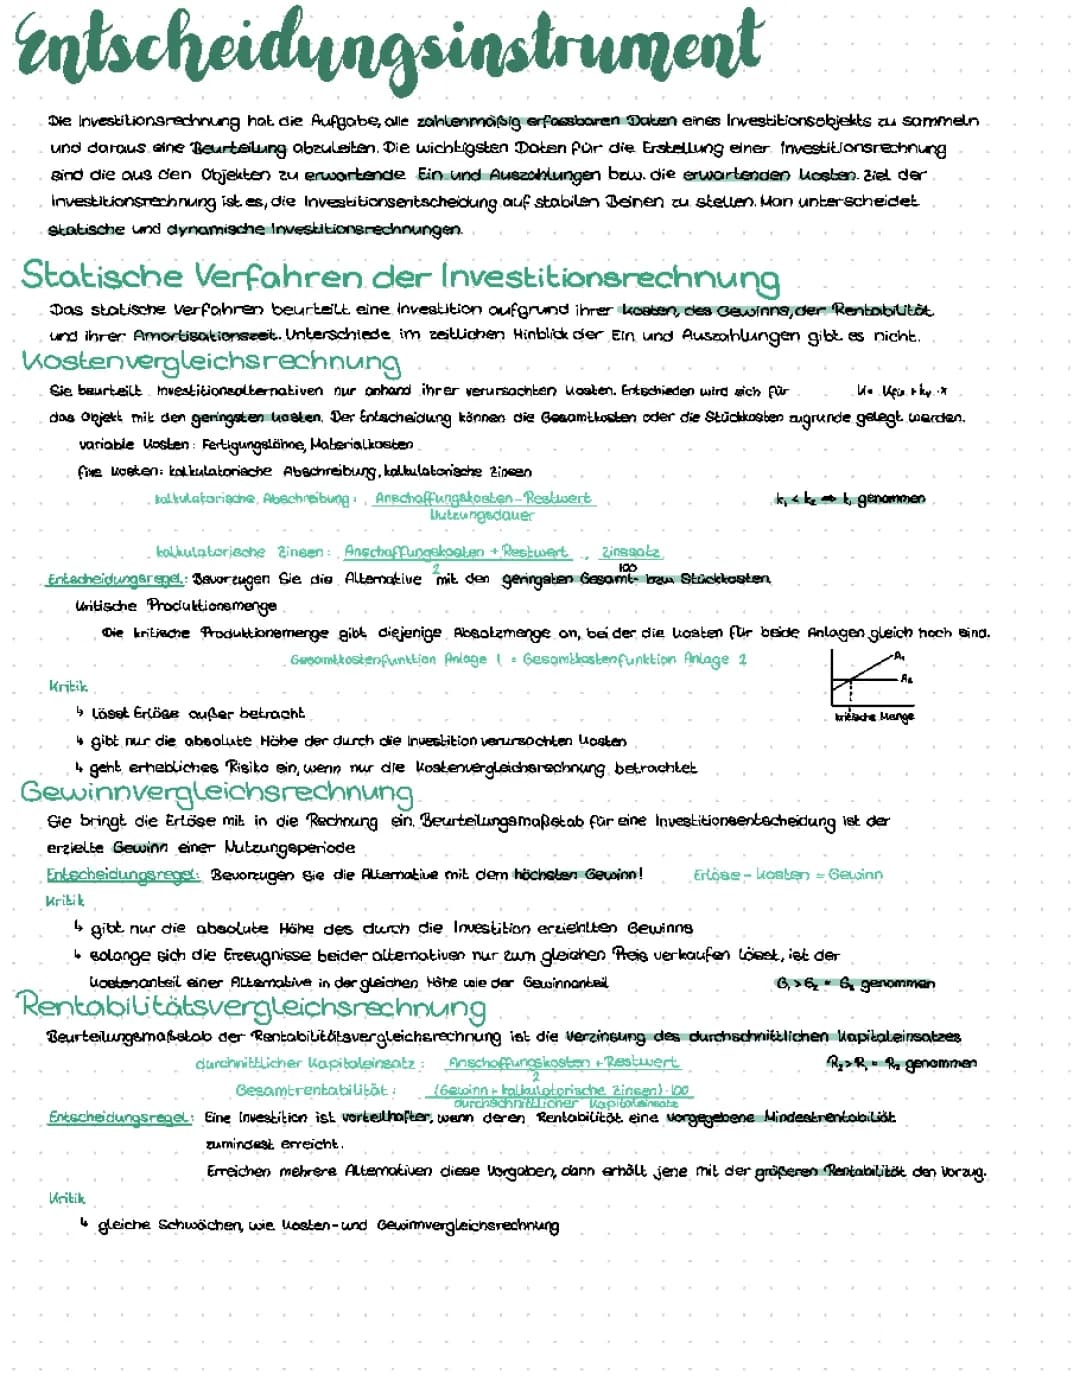 Entscheidungsinstrument
Die Investitionsrechnung hat die Aufgabe, alle zahlenmäßig erfassbaren Daten eines Investitionsobjekts zu sammeln
und daraus eine Beurteilung abzuleiten. Die wichtigsten Daten für die Erstellung einer Investitionsrechnung
sind die aus den Objekten zu erwartende Ein und Auszahlungen bzw. die erwartenden Kosten. Ziel der
Investitionsrechnung ist es, die Investitionsentscheidung auf stabilen Beinen zu stellen. Man unterscheidet
statische und dynamische Investitionsrechnungen.
Statische Verfahren der Investitionsrechnung
Das statische Verfahren beurteilt eine Investition aufgrund ihrer Kosten, des Gewinns, der Rentabilität
und ihrer Amortisationszeit. Unterschiede im zeitlichen Hinblick der Ein und Auszahlungen gibt es nicht.
Kostenvergleichsrechnung
Sie beurteilt Investitionsalternativen nur anhand ihrer verursachten Kosten. Entschieden wird sich für K = Kfix + kv · x
das Objekt mit den geringsten Kosten. Der Entscheidung können die Gesamtkosten oder die Stückkosten zugrunde gelegt werden.
variable Kosten: Fertigungslöhne, Materialkosten
fixe Kosten: kalkulatorische Abschreibung, kalkulatorische Zinsen
kalkulatorische Abschreibung: Anschaffungskosten - Restwert k₁ < k₂ ⇒ k₁ genommen
Nutzungsdauer
kalkulatorische Zinsen: Anschaffungskosten + Restwert · Zinssatz
2 100
Entscheidungsregel: Bevorzugen Sie die Alternative mit den geringsten Gesamt- bzw. Stückkosten
kritische Produktionsmenge
Die kritische Produktionsmenge gibt diejenige Absatzmenge an, bei der die Kosten für beide Anlagen gleich hoch sind.
Gesamtkostenfunktion Anlage 1 = Gesamtkostenfunktion Anlage 2
A₁
A₂
kritische Menge
Kritik
↳ lässt Erlöse außer betracht
↳ gibt nur die absolute Höhe der durch die Investition verursachten Kosten
↳ geht erhebliches Risiko ein, wenn nur die Kostenvergleichsrechnung betrachtet
Gewinnvergleichsrechnung
Sie bringt die Erlöse mit in die Rechnung ein. Beurteilungsmaßstab für eine Investitionsentscheidung ist der
erzielte Gewinn einer Nutzungsperiode
Entscheidungsregel: Bevorzugen Sie die Alternative mit dem höchsten Gewinn! Erlöse - Kosten = Gewinn
Kritik
↳ gibt nur die absolute Höhe des durch die Investition erziehlten Gewinns
↳ solange sich die Erzeugnisse beider alternativen nur zum gleichen Preis verkaufen lässt, ist der
Kostenanteil einer Alternative in der gleichen Höhe wie der Gewinnanteil G₁ > G₂ = genommen
Rentabilitätsvergleichsrechnung
Beurteilungsmaßstab der Rentabilitätsvergleichsrechnung ist die Verzinsung des durchschnittlichen Kapitaleinsatzes
durchnittlicher Kapitaleinsatz: Anschaffungskosten + Restwert R₂ > R₁ = R₂ genommen
2
Gesamtrentabilität: (Gewinn + kalkulatorische Zinsen) · 100
durchschnittlicher Kapitaleinsatz
Entscheidungsregel: Eine Investition ist vorteilhafter, wenn deren Rentabilität eine vorgegebene Mindestrentabiliät
zumindest erreicht.
Erreichen mehrere Alternativen diese Vorgaben, dann erhält jene mit der größeren Rentabilität den Vorzug.
Kritik
↳ gleiche Schwächen, wie Kosten- und Gewinnvergleichsrechnung